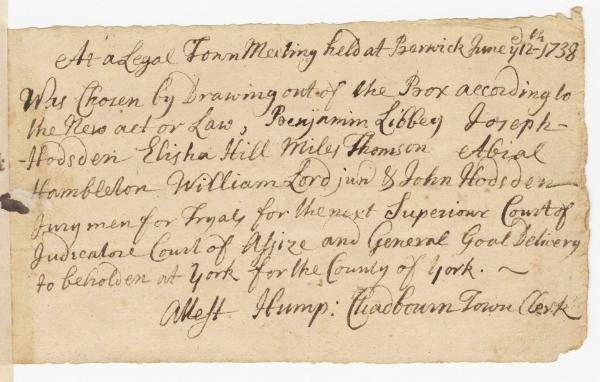 At a Legal Town Meeting held at Barwick June ye 12th 1738
Was Chosen by Drawing out of the Box according to
the New act or Law, Benjamin Libbey Joseph-
-Hodsden Elisha Hill Miles Thomson Abial
Hambleton William Lord jund & John Hodsden
Jurymen for Tryals for the next Superiour Court of
Judicatore Court of Assize and General Goal Delivery
to beholden at York for the County of York. ~
Attest Hump: Chadbourn Town Clerk